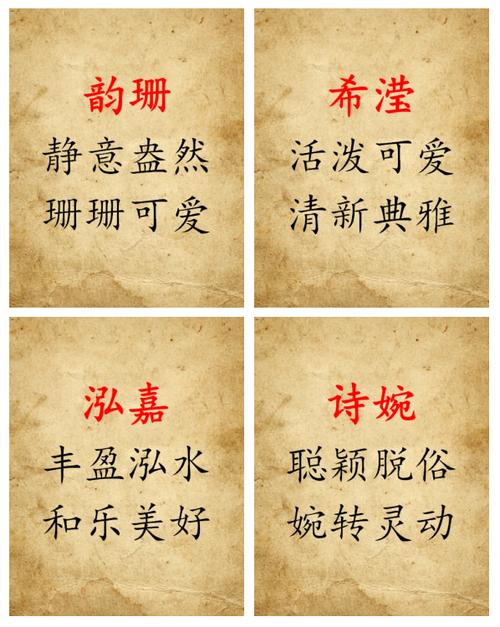 韵珊
静意盎然
珊珊可爱
希滢
活泼可爱
清新典雅
泓嘉
丰盈泓水
和乐美好
诗婉
聪颖脱俗
婉转灵动